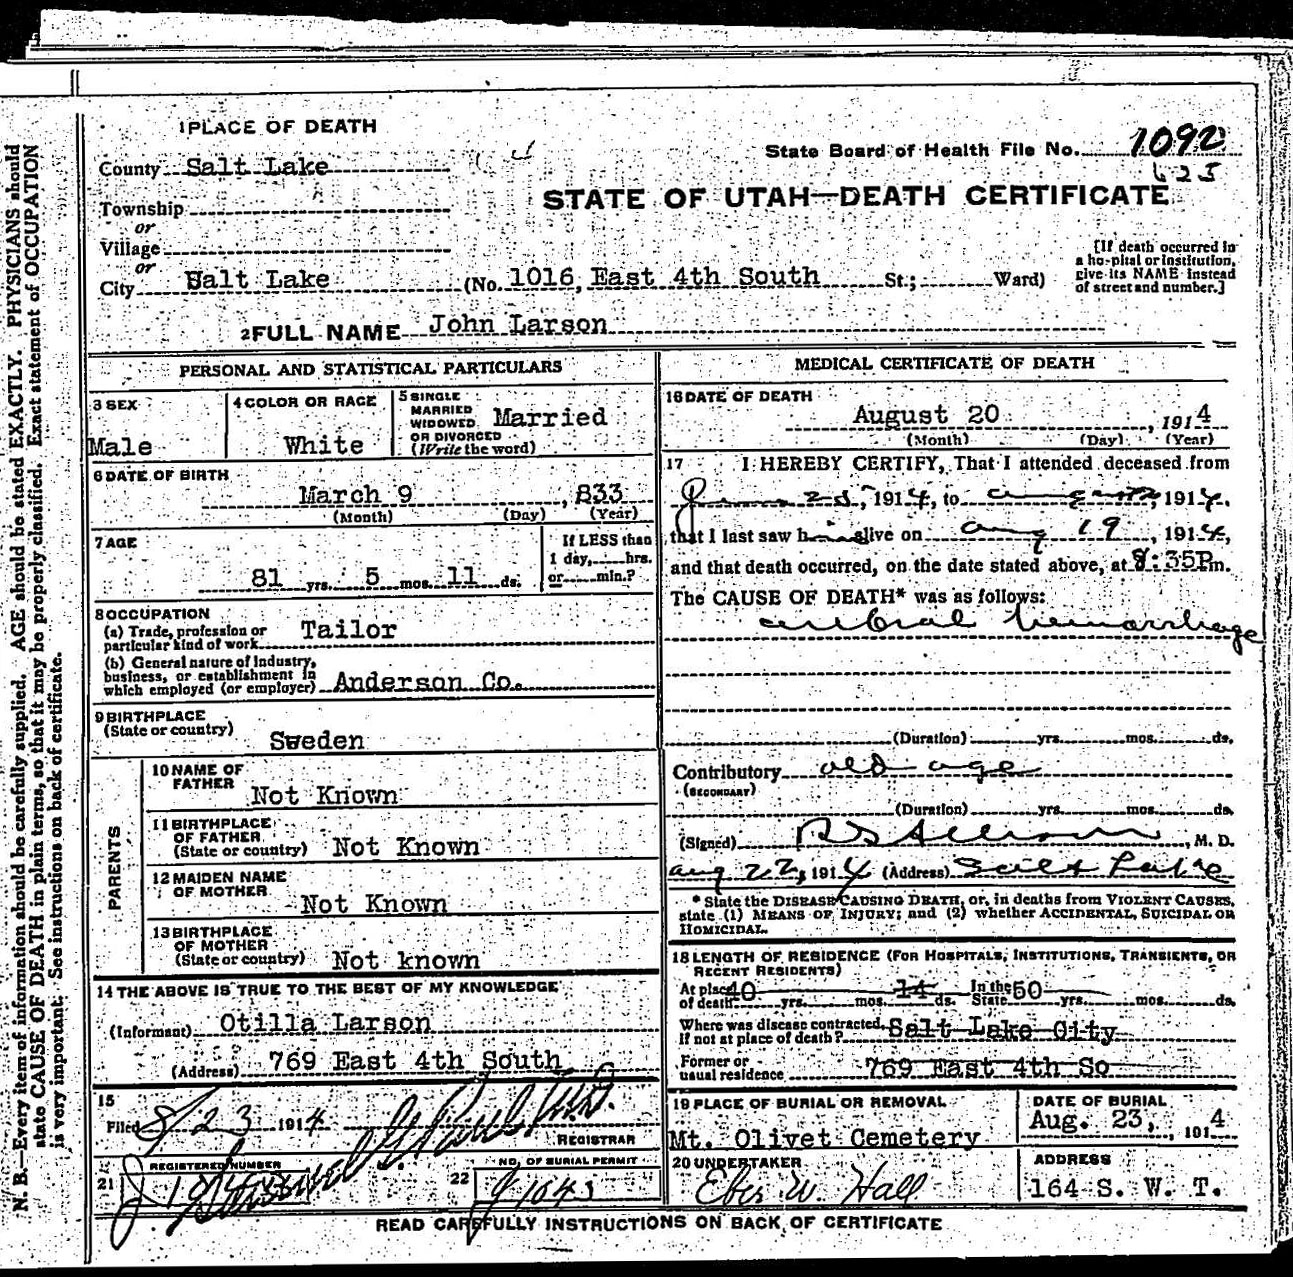 1 PLACE OF DEATH
County Salt Lake
State Board of Health File No. 1092
623
STATE OF UTAH—DEATH CERTIFICATE
Township
or
Village
or
City Salt Lake (No. 1016, East 4th South St.; Ward)
[If death occurred in
a hospital or institution,
give its NAME instead
of street and number.]
2 FULL NAME John Larson
PERSONAL AND STATISTICAL PARTICULARS
3 SEX
Male
4 COLOR OR RACE
White
5 SINGLE
MARRIED
WIDOWED
OR DIVORCED
(Write the word)
Married
6 DATE OF BIRTH
March 9, 833
(Month) (Day) (Year)
7 AGE
81 yrs. 5 mos. 11 ds.
If LESS than
1 day, hrs.
or min.?
8 OCCUPATION
(a) Trade, profession or
particular kind of work Tailor
(b) General nature of industry,
business, or establishment in
which employed (or employer) Anderson Co.
9 BIRTHPLACE
(State or country)
Sweden
PARENTS
10 NAME OF
FATHER
Not Known
11 BIRTHPLACE
OF FATHER
(State or country) Not Known
12 MAIDEN NAME
OF MOTHER
Not Known
13 BIRTHPLACE
OF MOTHER
(State or country) Not known
14 THE ABOVE IS TRUE TO THE BEST OF MY KNOWLEDGE
(Informant) Otilla Larson
(Address) 769 East 4th South
15
Filed 8/23 1914
REGISTRAR
REGISTERED NUMBER
21
22
NO. OF BURIAL PERMIT
J 1043
MEDICAL CERTIFICATE OF DEATH
16 DATE OF DEATH
August 20, 1914
(Month) (Day) (Year)
17 I HEREBY CERTIFY, That I attended deceased from
, 1914, to , 1914,
that I last saw him alive on Aug 19, 1914,
and that death occurred, on the date stated above, at 8:35P m.
The CAUSE OF DEATH* was as follows:
cerebral hemorrhage
(Duration) yrs. mos. ds.
Contributory old age
(SECONDARY)
(Duration) yrs. mos. ds.
(Signed) , M. D.
Aug 22, 1914 (Address) Salt Lake
* State the DISEASE CAUSING DEATH, or, in deaths from VIOLENT CAUSES,
state (1) MEANS OF INJURY; and (2) whether ACCIDENTAL, SUICIDAL OR
HOMICIDAL.
18 LENGTH OF RESIDENCE (FOR HOSPITALS, INSTITUTIONS, TRANSIENTS, OR
RECENT RESIDENTS)
At place of death 40 yrs. mos. 14 ds. In the State 50 yrs. mos. ds.
Where was disease contracted,
If not at place of death? Salt Lake City
Former or
usual residence 769 East 4th So
19 PLACE OF BURIAL OR REMOVAL
Mt. Olivet Cemetery
DATE OF BURIAL
Aug. 23, 1914
20 UNDERTAKER
Eber W. Hall
ADDRESS
164 S. W. T.
READ CAREFULLY INSTRUCTIONS ON BACK OF CERTIFICATE
N. B.—Every item of information should be carefully supplied. AGE should be stated EXACTLY. PHYSICIANS should
state CAUSE OF DEATH in plain terms, so that it may be properly classified. Exact statement of OCCUPATION
is very important. See instructions on back of certificate.